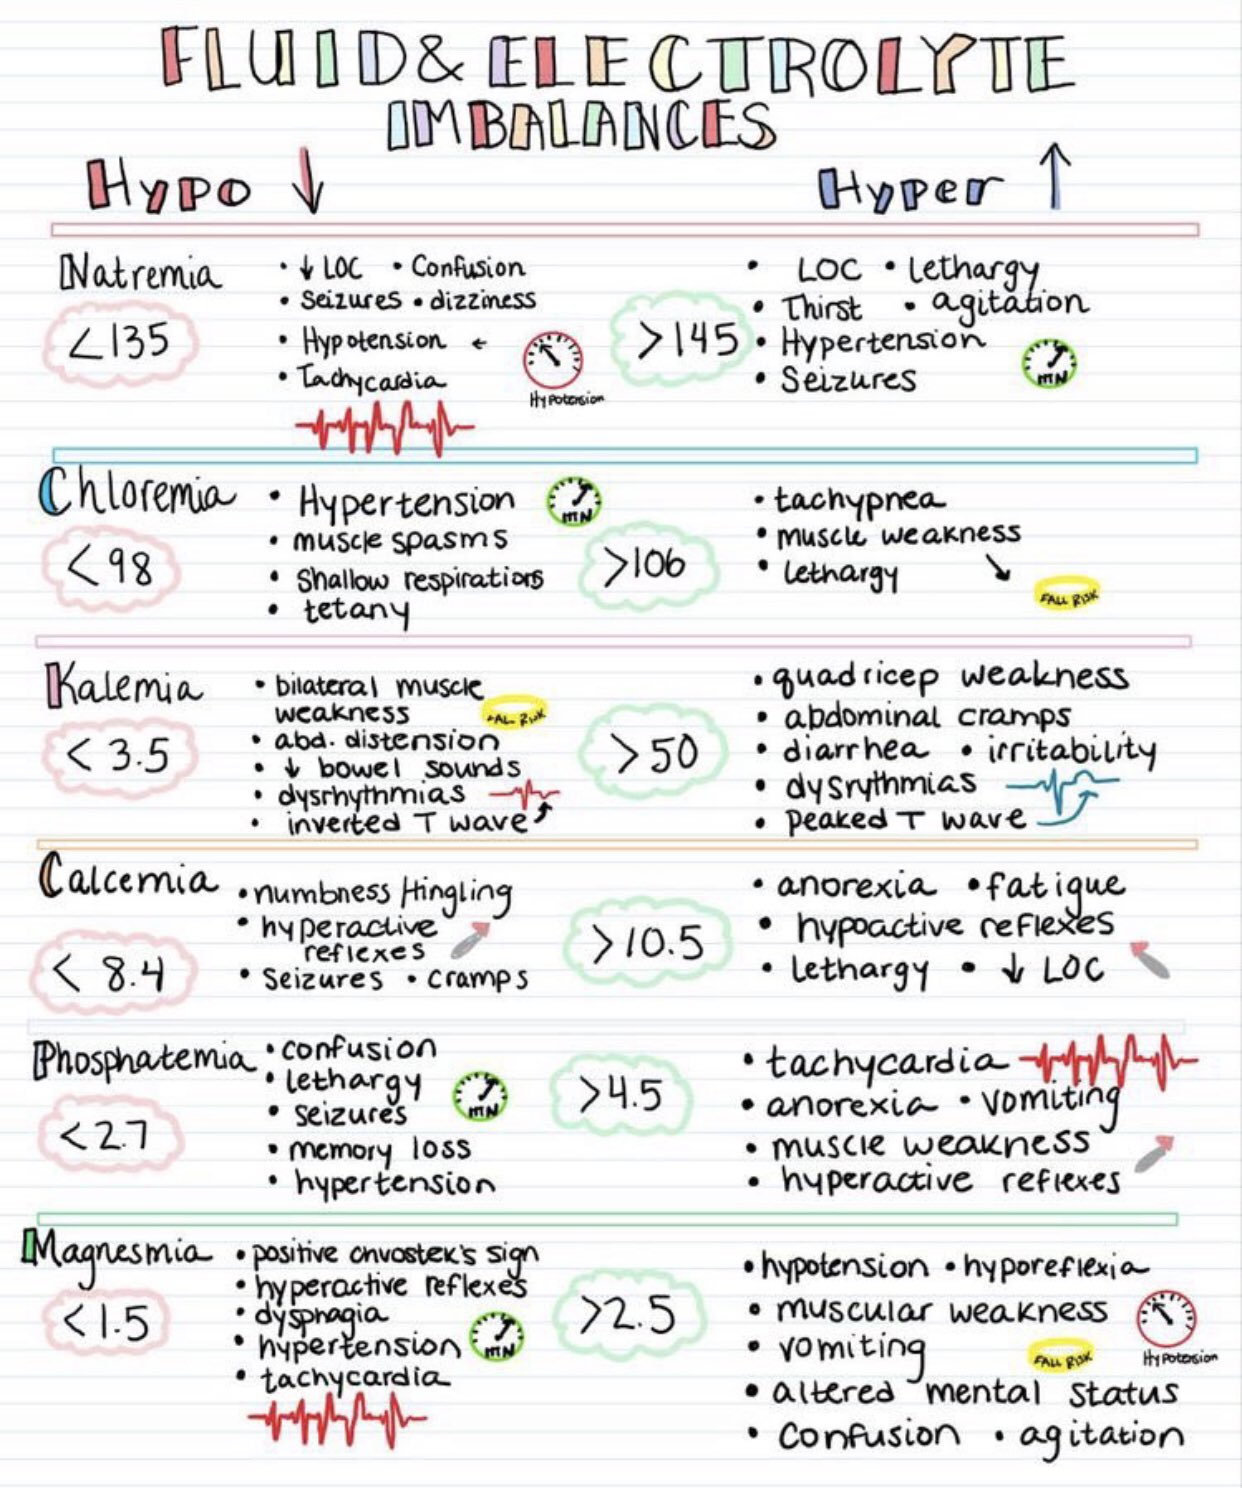 FLUID & ELECTROLYTE
IMBALANCES
Hypo ↓
Hyper ↑
Natremia
<135
• ↓ LOC • Confusion
• Seizures • dizziness
• Hypotension ←
• Tachycardia
Hypotension
>145
• LOC • lethargy
• Thirst • agitation
• Hypertension
• Seizures
HTN
Chloremia
<98
• Hypertension
HTN
• muscle spasms
• Shallow respirations
• tetany
>106
• tachypnea
• muscle weakness
• lethargy
FALL RISK
Kalemia
< 3.5
• bilateral muscle
weakness
FALL RISK
• abd. distension
• ↓ bowel sounds
• dysrhythmias
• inverted T wave
>50
• quadricep weakness
• abdominal cramps
• diarrhea • irritability
• dysrythmias
• peaked T wave
Calcemia
< 8.4
• numbness/tingling
• hyperactive
reflexes
• Seizures • cramps
>10.5
• anorexia • fatigue
• hypoactive reflexes
• lethargy • ↓ LOC
Phosphatemia
<2.7
• confusion
• lethargy
• seizures
HTN
• memory loss
• hypertension
>4.5
• tachycardia
• anorexia • vomiting
• muscle weakness
• hyperactive reflexes
Magnesmia
<1.5
• positive chvostek's sign
• hyperactive reflexes
• dysphagia
• hypertension
HTN
• tachycardia
>2.5
• hypotension • hyporeflexia
• muscular weakness
• vomiting
FALL RISK
Hypotension
• altered mental status
• Confusion • agitation